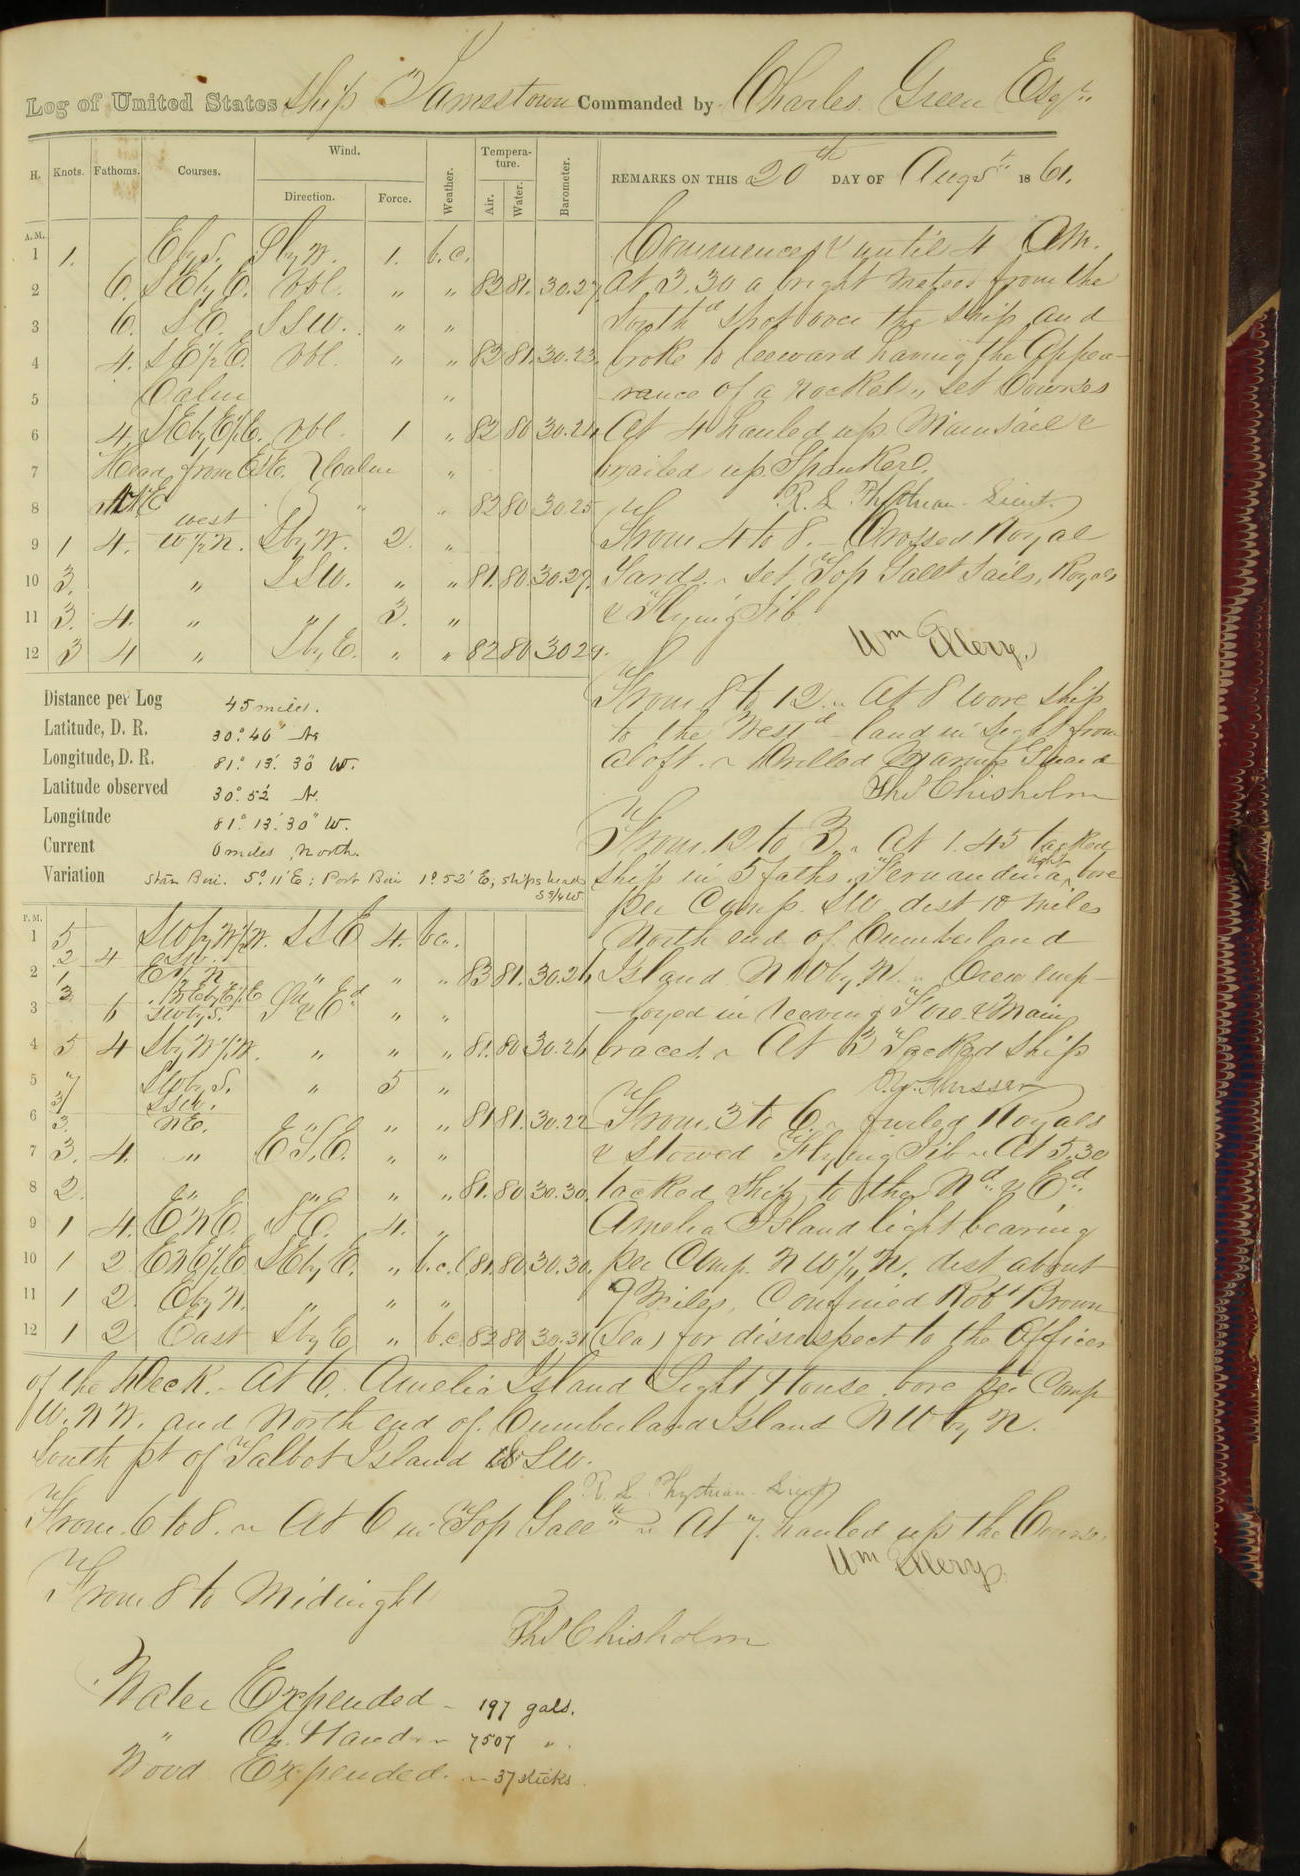 Log of United States Ship Jamestown Commanded by Charles Green Esqr.
H. Knots. Fathoms. Courses. Wind. Direction. Force. Weather. Temperature. Air. Water. Barometer.
REMARKS ON THIS 20th DAY OF August 1861.
A.M.
1 1. E by S. S by W. 1. b.c.
2 6. SE by E. Vbl. " " 82 81. 30.27
3 6. SE. SSW. " "
4 4. SE ½ E. Vbl. " " 82 81. 30.23.
5 Calm "
6 4. SE by E ½ E. Vbl. 1 " 82 80 30.24
7 Head from ESE. Calm "
8 " " 82 80 30.25
9 1 4. west W ½ N. S by W. 2. "
10 3. " SSW. " " 81. 80. 30.27.
11 3. 4. " " 3. "
12 3 4 " S by E. " " 82 80 30 29.
Commences & until 4 AM.
At 3.30 a bright meteor from the
Southd shot over the ship and
broke to leeward having the Appea-
rance of a rocket. Set Courses
At 4 hauled up Mainsail &
brailed up Spanker.
From 4 to 8. Crossed Royal
Yards. Set Top Gallt Sails, Royals
& Flying Jib
Wm Ellery.
From 8 to 12. At 8 wore ship
to the Westd land in sight from
aloft. Drilled Marine Guard
Ths Chisholm
From 12 to 3. At 1.45 tacked
ship in 5 faths. Fernandina light bore
per Comp. SW dist 10 miles
North end of Cumberland
Island NW by N. Crew emp-
loyed in reeving Fore & Main
braces. At 3 Tacked ship
From 3 to 6. furled Royals
& stowed Flying Jib. At 5.30
tacked Ship to the Nd & Ed
Amelia Island light bearing
per Comp. NW ½ N. dist about
9 Miles, Confined Robt Brown
(Sea) for disrespect to the Officer
Distance per Log 45 miles.
Latitude, D. R. 30° 46' N.
Longitude, D. R. 81° 13' 30" W.
Latitude observed 30° 52' N.
Longitude 81° 13' 30" W.
Current 6 miles North.
Variation Stan Bin. 5° 11' E; Port Bin 1° 52' E; ships head S ¾ W.
P.M.
1 5 2 4 SW by W ½ W. SSW. SSE 4. b.c.
2 1 3 E ½ N " " " 83 81. 30.26
3 6 SW by S. S & Ed " "
4 5 4 S by W ½ W. " " " 81. 80 30.26
5 SW by S. " 5 "
6 3. NE. " " " 81 81. 30.22
7 3. 4. " ESE. " "
8 2. " " " " 81. 80 30.30.
9 1 4. ENE. SE. 4. "
10 1 2 ENE ½ E SE by E. " b.c.l. 81. 80. 30.30.
11 1 2. E by N. " " "
12 1 2 East S by E " b.c. 82 80 30.31
of the Deck. At 6. Amelia Island Light House bore per Comp
W.NW. and North end of Cumberland Island NW by N.
South pt of Talbot Island SW.
From 6 to 8. At 6 in Top Gallts At 7. hauled up the Courses
Wm Ellery
From 8 to Midnight
Ths Chisholm
Water Expended - 197 gals.
" On Hand 7507 "
Wood Expended 37 sticks